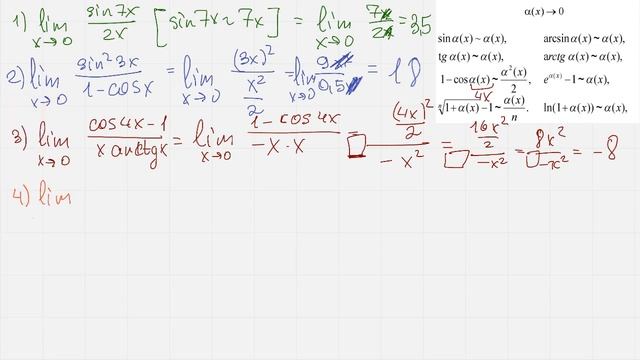 1) lim x→0 sin7x / 2x [sin7x ~ 7x] = lim x→0 7x / 2x = 3,5
2) lim x→0 sin²3x / 1-cosx = lim x→0 (3x)² / x²/2 = lim x→0 9x² / 0,5x² = 18
3) lim x→0 cos4x-1 / x arctgx = lim x→0 1-cos4x / -x·x = (4x)²/2 / -x² = 16x²/2 / -x² = 8x² / -x² = -8
4) lim
α(x) → 0
sin α(x) ~ α(x), arcsin α(x) ~ α(x),
tg α(x) ~ α(x), arctg α(x) ~ α(x),
1 - cos α(x) ~ α²(x)/2, e^α(x) - 1 ~ α(x),
4x
ⁿ√1+α(x) - 1 ~ α(x)/n. ln(1+α(x)) ~ α(x),